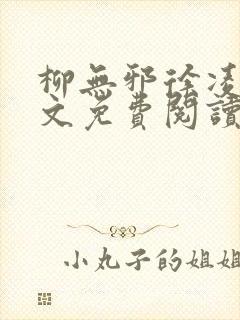 柳無邪徐凌
文免費閱讀
小丸子的姐姐